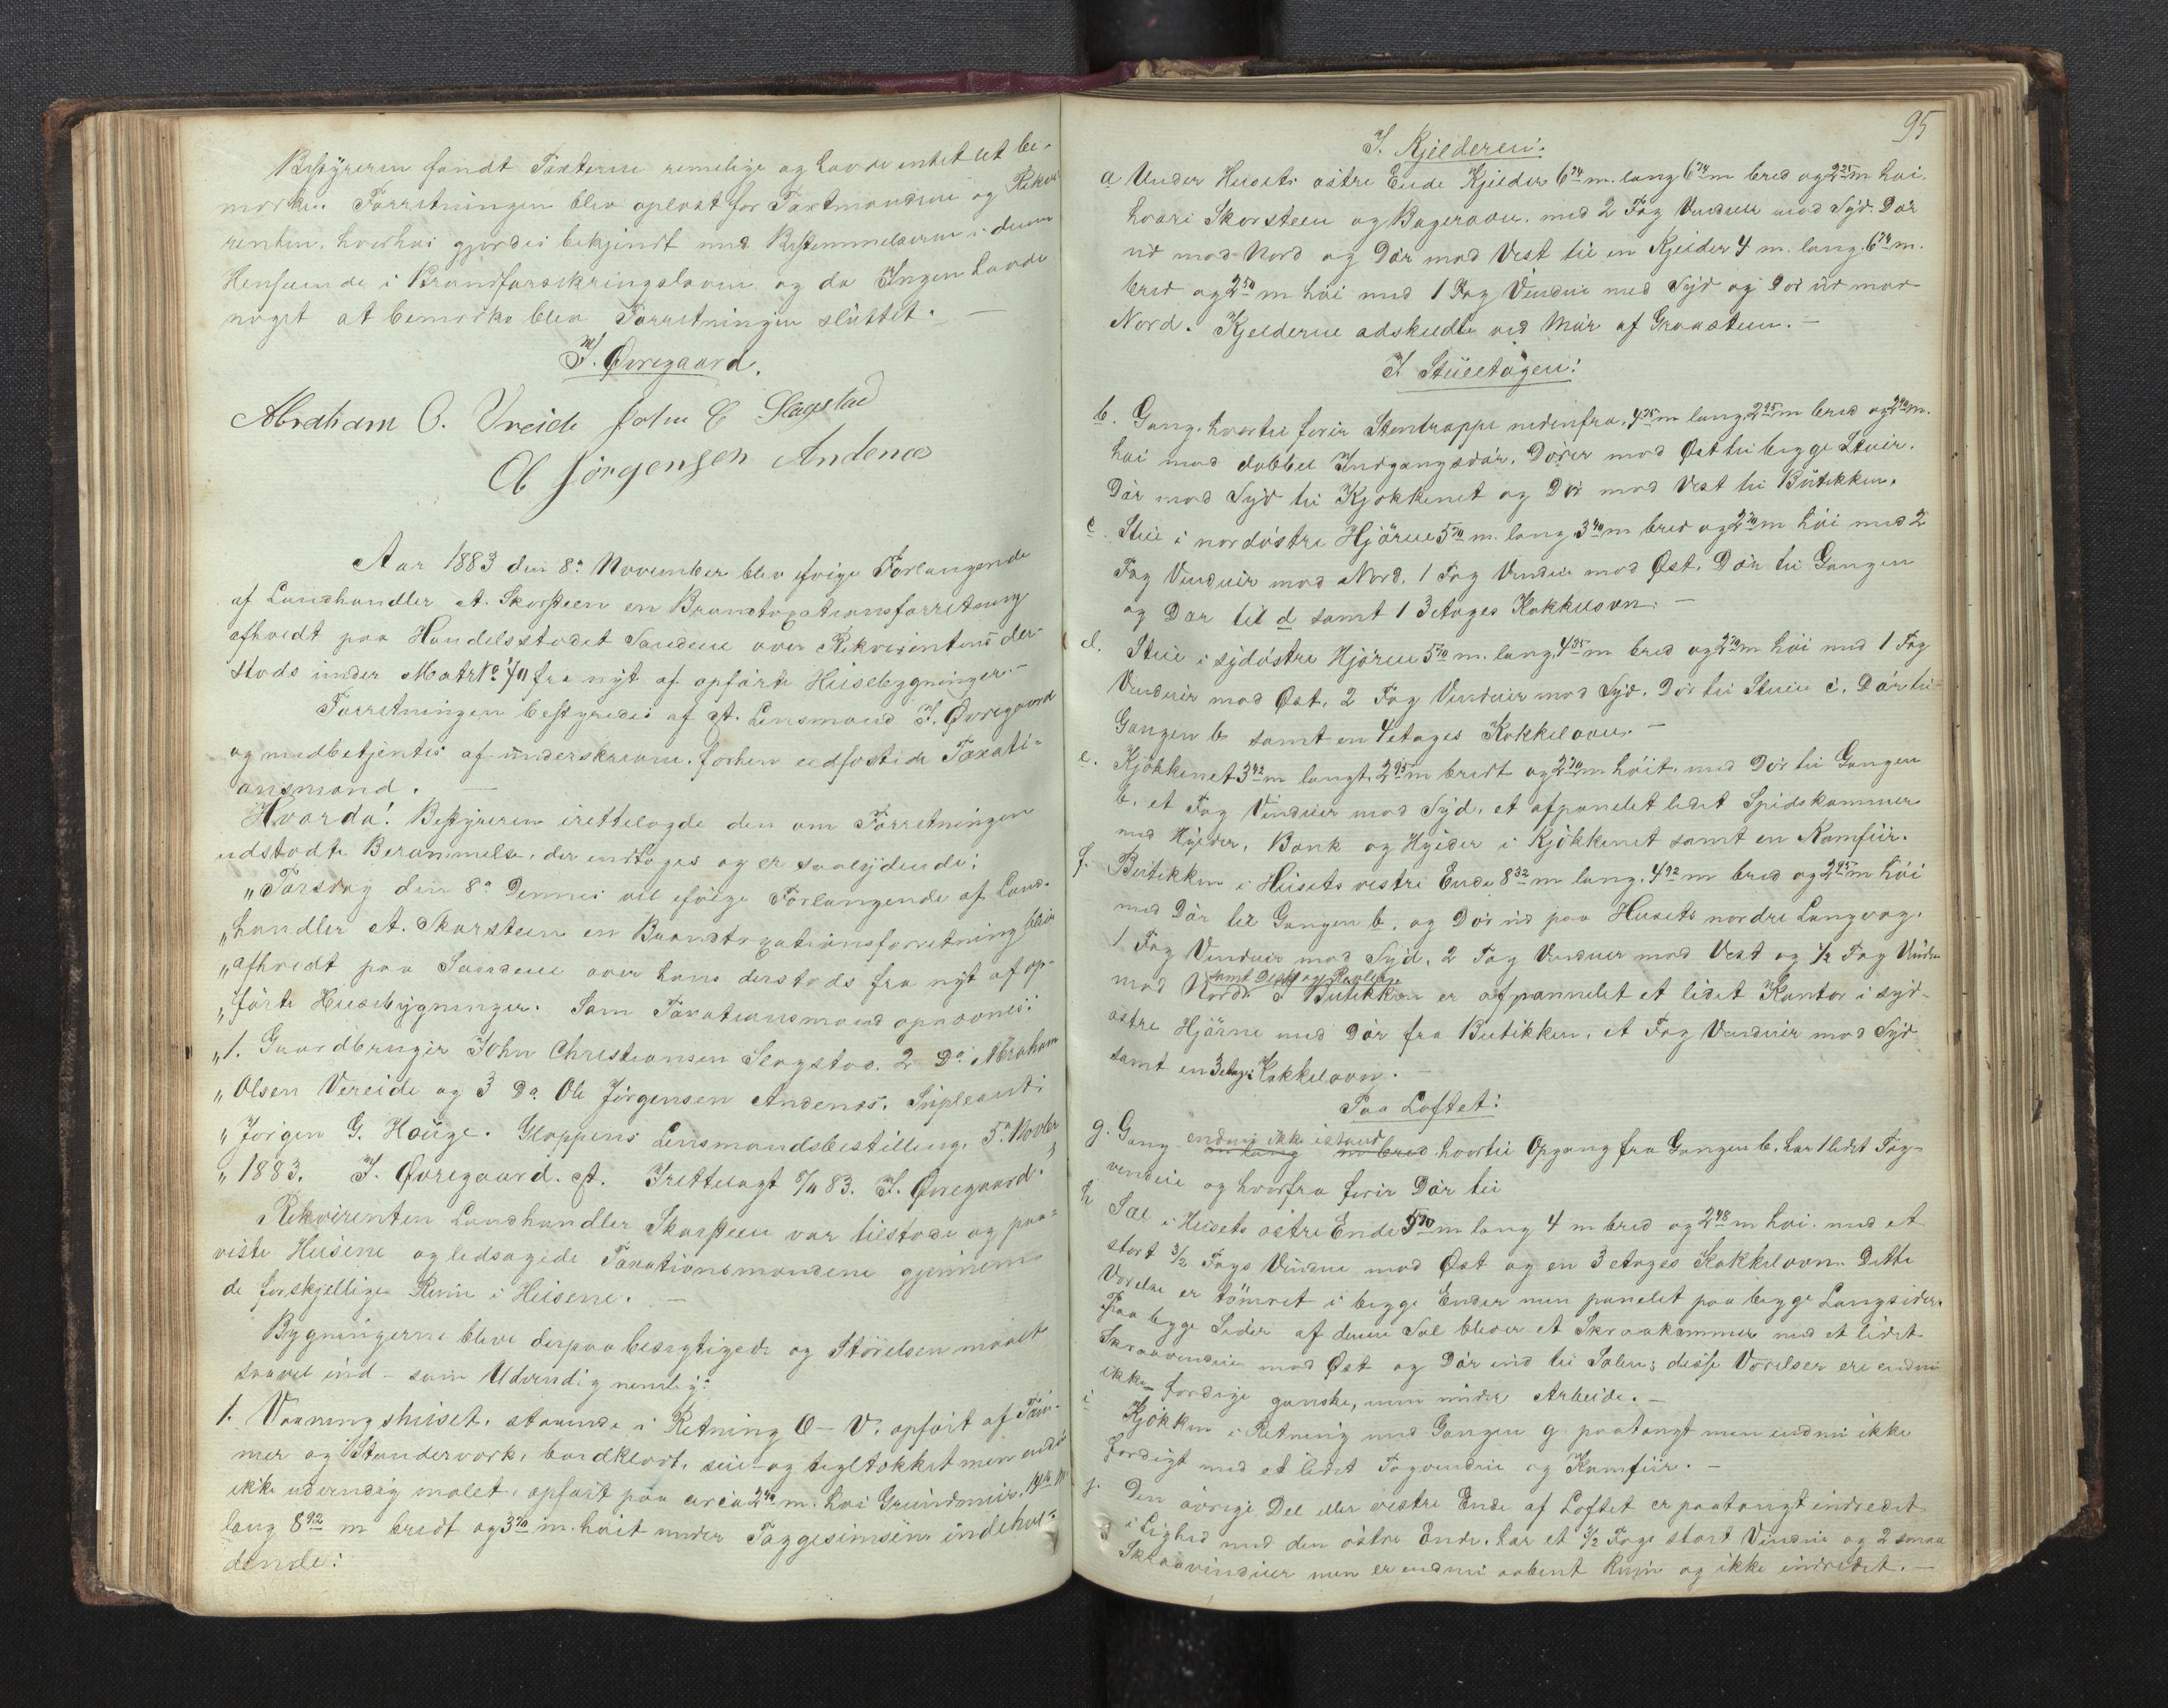 Bestyreren fandt Taxterne rimelige og havde intet at be-
mærke. Forretningen blev oplæst for Taxtmændene og Rekvi-
renten, hvorhos gjordes bekjendt med Bestemmelserne i denne
Henseende i Brandforsikringsloven og da Ingen havde
noget at bemærke blev Forretningen sluttet. —
I. Øvregaard.
Abraham O. Vreide John C Slagstad
Ol Jörgensen Andenæs
Aar 1883 den 8de November blev ifølge Forlangende
af Landhandler A. Skarsteen en Brandtaxationsforretning
afholdt paa Handelsstedet Sandene over Rekvirentens der-
steds under Matr No fra nyt af opførte Husebygninger. —
Forretningen bestyredes af st. Lensmand I. Øvregaard
og medbetjentes af underskrevne, forhen eedfæstede Taxati-
onsmænd. —
Hvorda! Bestyreren irettelagde den om Forretningen
udstedte Berammelse, der indtages og er saalydende:
„Torsdag den 8de Dennes vil ifølge Forlangende af Land-
„handler A. Skarsteen en Brandtaxationsforretning blive
„afholdt paa Sandene over hans dersteds fra nyt af op-
„førte Husebygninger. Som Taxationsmænd opnævnes:
„1. Gaardbruger John Christiansen Slagstad. 2 Do Abraham
„Olsen Vereide og 3 Do Ole Jörgensen Andenæs. Supleant:
„Jörgen G. Hauge. Gloppens Lensmandsbestilling, 5te Novbr
„1883. I. Øvregaard. st. Irettelagt 8/11 83. I. Øvregaard.”
Rekvirenten Landhandler Skarsteen var tilstede og paa-
viste Husene og ledsagede Taxationsmændene gjennem
de forskjellige Rum i Husene. —
Bygningerne bleve derpaa besigtigede og Størrelsen maalt
saavel ind- som Udvendig nemlig:
1. Vaaningshuset, staaende i Retning O–V. opført af Tøm-
mer og Standerværk, bordklædt, sue- og tegltækket men endnu
ikke udvendig malet, opført paa circa 2 40 m. høi Grundmuur,
lang 8 92 m bredt og 3 70 m. høit under Taggesimsen indehol-
dende:
95
I. Kjelderen:
a Under Husets østre Ende Kjelder 6 74 m. lang 6 74 m bred og 2 25 m høi.
hvori Skorsteen og Bagerovn. med 2 Fag Vinduer mod Syd. Dør
ud mod Nord og Dør mod Vest til en Kjelder 4 m. lang. 6 74 m.
bred og 2 50 m høi med 1 Fag Vindue mod Syd og Dør ud mod
Nord. Kjelderne adskildte ved Mur af Graasteen. —
I Stueetagen:
b. Gang, hvortil fører Stentrappe nedenfra, 4 25 m lang, 2 95 m bred og 2 70 m.
høi med dobbel Indgangsdør, Dører mod Øst til begge Stuer.
Dør mod Syd til Kjøkkenet og Dør mod Vest til Butikken.
c. Stue i nordøstre Hjørne 5 70 m. lang 3 40 m bred og 2 70 m høi med 2
Fag Vinduer mod Nord, 1 Fag Vindue mod Øst, Dør til Gangen
og Dør til d samt 1 3 etages Kakkelovn. —
d. Stue i sydøstre Hjørne 5 70 m. lang, 4 35 m bred og 2 70 m høi med 1 Fag
Vinduer mod Øst, 2 Fag Vinduer mod Syd. Dør til Stuen c, Dør til
Gangen b samt en 4 etages Kakkelovn. —
e. Kjøkkenet 3 42 m langt, 2 95 m bredt og 2 70 m høit, med Dør til Gangen
b, et Fag Vinduer mod Syd, et afpanelet lidet Spidskammer
med Hylder, Bænk og Hylder i Kjøkkenet samt en Komfur.
f. Butikken i Husets vestre Ende 8 32 m lang, 4 92 m bred og 2 95 m høi
med Dør til Gangen b, og Dør ud paa Husets nordre Langvæg,
1 Fag Vinduer mod Syd, 2 Fag Vinduer mod Vest og 1/2 Fag Vindue
samt Disk og Reoler.
mod Nord. I Butikken er afpannelet et lidet Kontor i syd-
østre Hjørne med Dør fra Butikken, et Fag Vinduer mod Syd
samt en 3 etages Kakkelovn. —
Paa Loftet:
endnu ikke istand
g. Gang m lang m bred hvortil Opgang fra Gangen b, har 1 lidet Fag-
vindue og hvorfra fører Dør til
h Sal i Husets østre Ende 5 70 m lang 4 m bred og 2 48 m høi. med et
stort 3/2 Fags Vindue mod Øst og en 3 etages Kakkelovn. Dette
Værelse er tømret i begge Ender men panelet paa begge Langsider.
Paa begge Sider af denne Sal bliver et Skraakammer med et lidet
Skraavindue mod Øst og Dør ind til Salen; disse Værelser ere endnu
ikke færdige ganske, men under Arbeide. —
i Kjøkken i Retning med Gangen g paatængt men endnu ikke
færdigt med et lidet Fagvindue og Komfur. —
j. Den øvrige Del eller vestre Ende af Loftet er paatængt indredet
i Lighed med den østre Ende, har et 3/2 Fags stort Vindue og 2 smaa
Skraavinduer men er endnu aabent Rum og ikke indredet. —